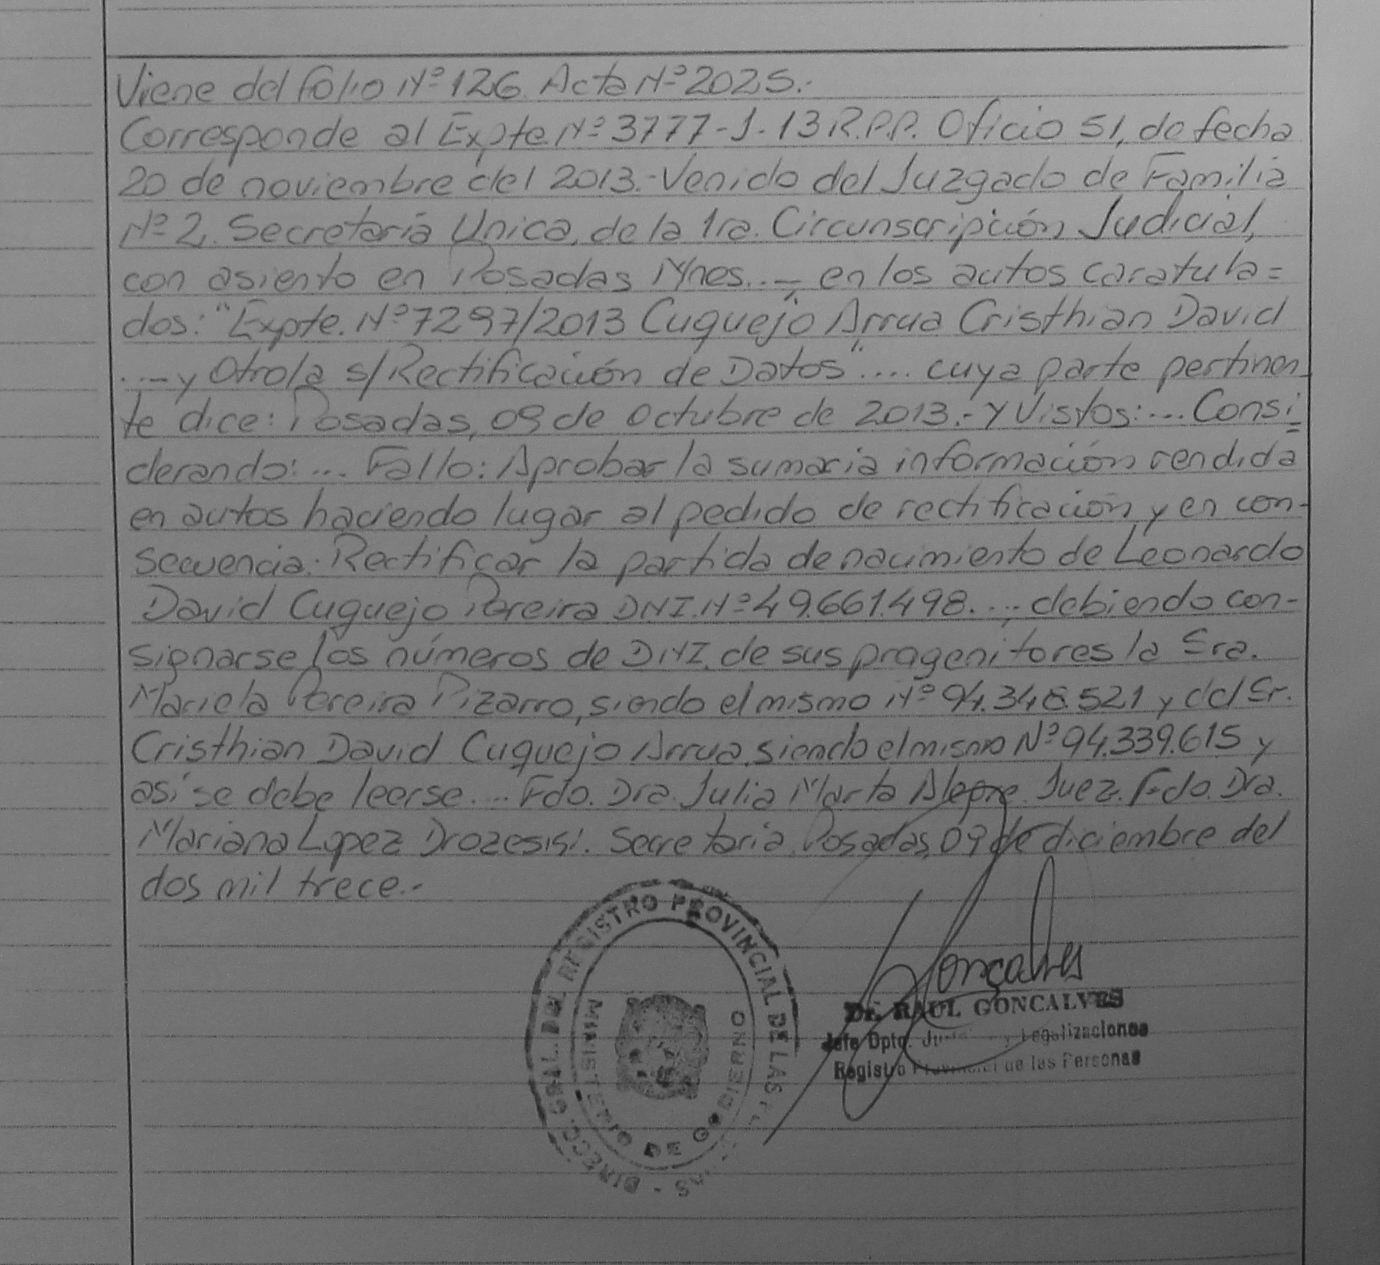 Viene del folio Nº 126. Acta Nº 2025.-
Corresponde al Expte. Nº 3777-J-13 R.P.P. Oficio 51, de fecha
20 de noviembre del 2013.- Venido del Juzgado de Familia
Nº 2, Secretaría Unica, de la 1ra. Circunscripición Judicial,
con asiento en Posadas Mnes..- en los autos caratula=
dos: "Expte. Nº 7297/2013 Cuquejo Arrua Cristhian David
...- y Otro/a s/Rectificación de Datos".... cuya parte pertinen
te dice: Posadas, 09 de Octubre de 2013.- Y Vistos:... Consi
derando:... Fallo: Aprobar la sumaria información rendida
en autos haciendo lugar al pedido de rectificación y en con-
secuencia. Rectificar la partida de nacimiento de Leonardo
David Cuquejo Pereira DNI. Nº 49.661.498...., debiendo con-
signarse los números de DNI. de sus progenitores la Sra.
Mariela Pereira Pizarro, siendo el mismo Nº 94.348.521 y del Sr.
Cristhian David Cuquejo Arrua, siendo el mismo Nº 94.339.615 y
así se debe leerse.... Fdo. Dra. Julia Marta Alegre. Juez. Fdo. Dra.
Mariana Lopez Secretaria. Posadas, 09 de diciembre del
dos mil trece.-
DIRECC. GRAL. DEL REGISTRO PROVINCIAL DE LAS
MINISTERIO DE GOBIERNO
Goncalves
Dr. RAUL GONCALVES
Jefe Dpto. y Legalizaciones
Registro Provincial de las Personas